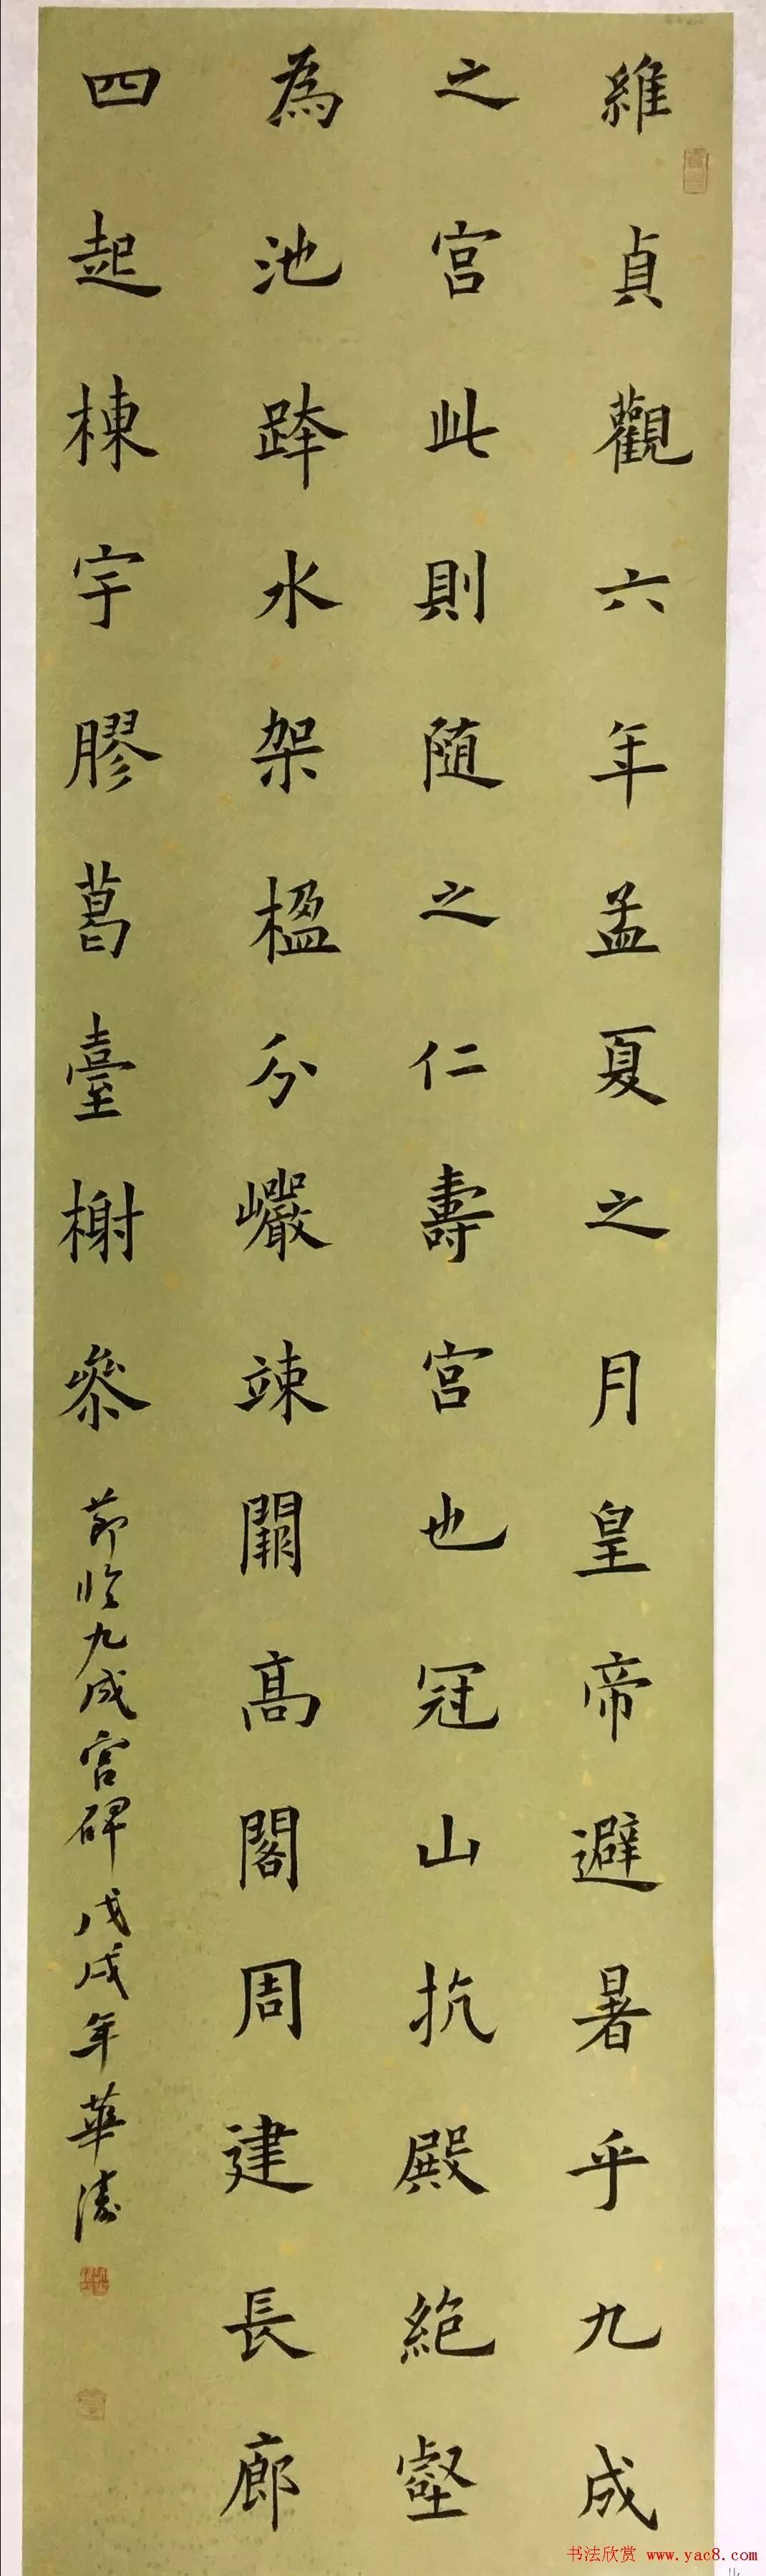 維貞觀六年孟夏之月皇帝避暑乎九成
之宮此則随之仁壽宮也冠山抗殿絶壑
為池跨水架楹分巖竦闕高閣周建長廊
四起棟宇膠葛臺榭參
節臨九成宮碑戊戌年華濤
书法欣赏 www.yac8.com